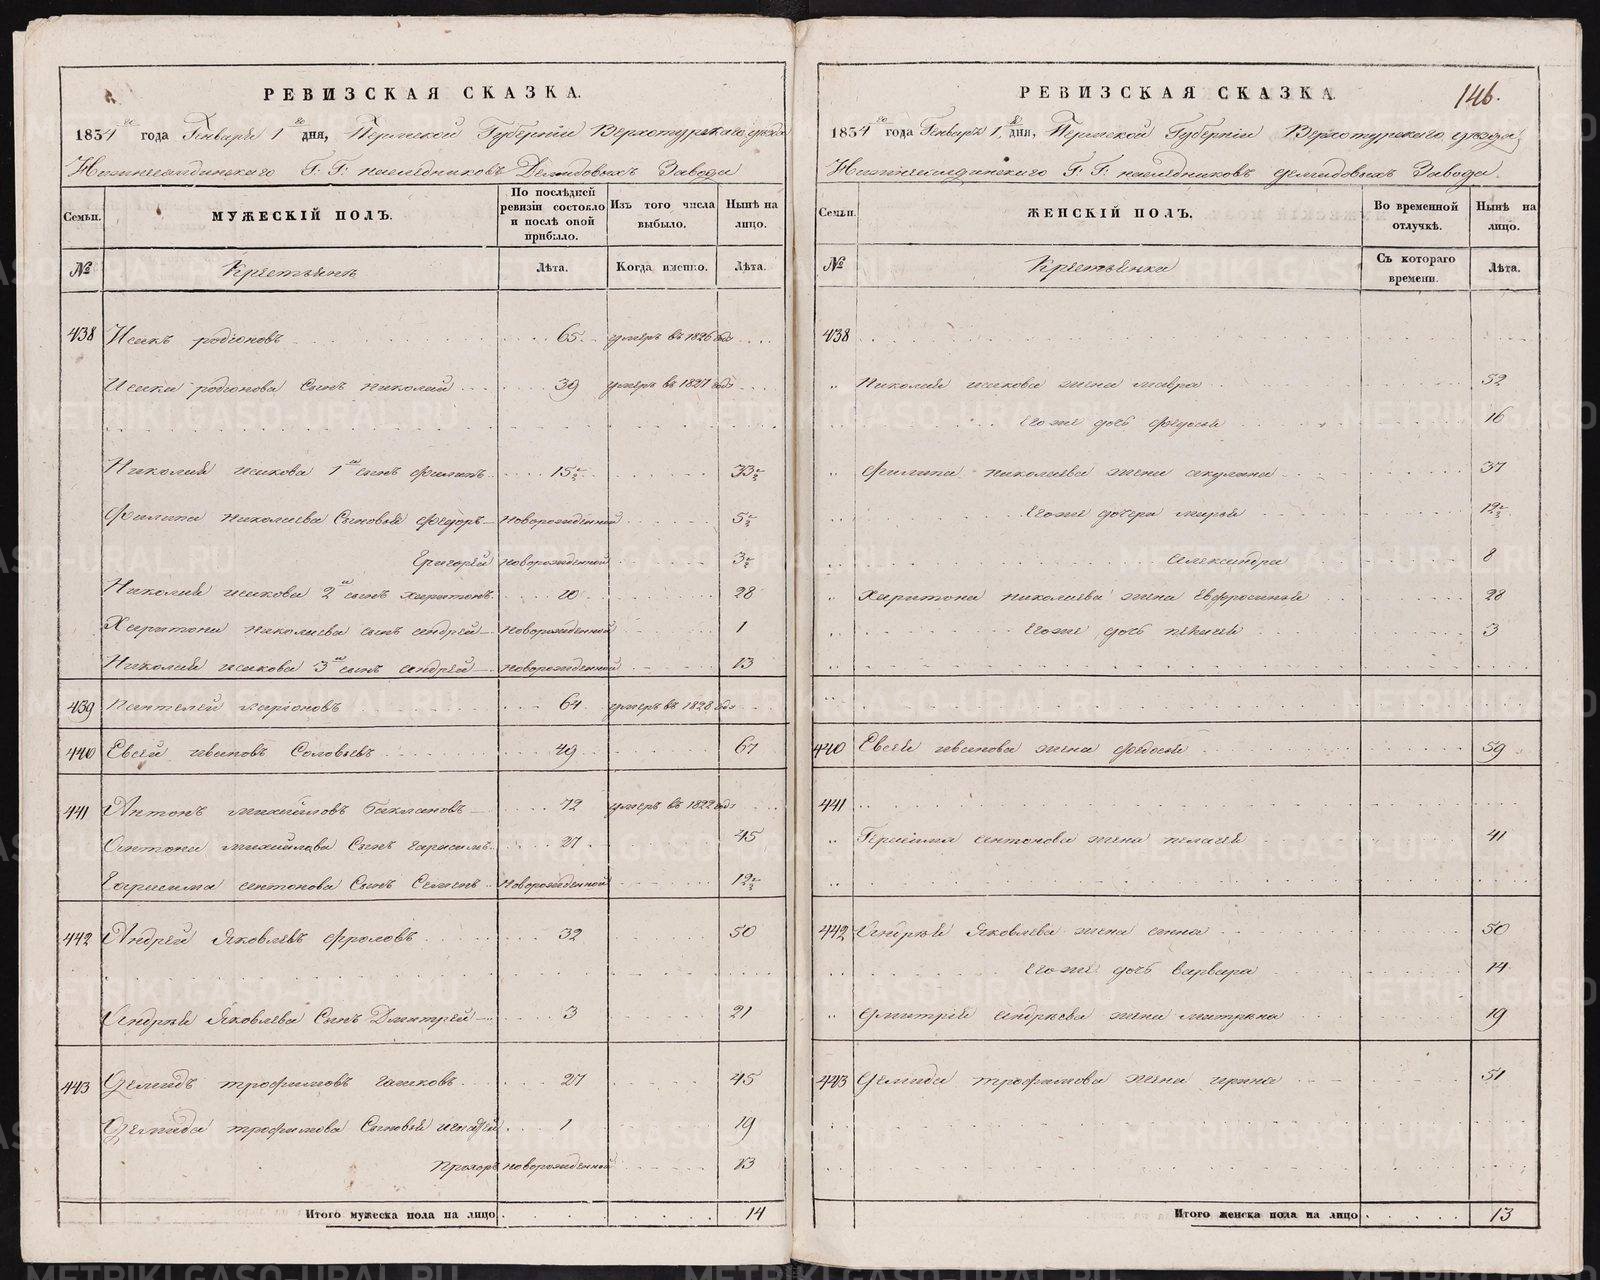 РЕВИЗСКАЯ СКАЗКА.
1834 го года Генваря 1 го дня, Пермской Губернiи Верхотурскаго уезда
Г. Г: наследниковъ Демидовыхъ Завода
Семьи.
МУЖЕСКIЙ ПОЛЪ.
По послѣдней ревизiи состояло и послѣ оной прибыло.
Изъ того числа выбыло.
Нынѣ на лицо.
№
Крестьянъ
Лѣта.
Когда именно.
Лѣта.
438 Исакъ родiоновъ 65 умеръ въ 1826 годе
Исака родiонова Сынъ Николай 39 умеръ въ 1827 годе
Николая исакова 1 й сынъ филипъ 15½ 33½
Филипа николаева Сыновья федоръ новорожденной 5½
Григорей новорожденной 3½
Николая исакова 2 й сынъ харитонъ 10 28
Харитона николаева сынъ андрей новорожденной 1
Николая исакова 3 й сынъ андрей новорожденной 13
439 Пантелей ларiоновъ 64 умеръ въ 1828 годе
440 Евсей ивановъ Соловьевъ 49 67
441 Антонъ михайловъ Бакланов 72 умеръ въ 1822 годе
Антона михайлова Сынъ гарасимъ 27 45
Гарасима антонова Сынъ Семенъ новорожденной 12½
442 Андрей Яковлевъ фроловъ 32 50
Андрея Яковлева Сынъ Дмитрей 3 21
443 Демидъ трофимовъ 27 45
Демида трофимова Сыновья 1 19
Прохоръ новорожденной 13
Итого мужеска пола на лицо 14
РЕВИЗСКАЯ СКАЗКА
146.
1834 го года Генваря 1 дня, Пермской Губернiи Верхотурскаго уезда
Г. Г: наследниковъ демидовыхъ Завода.
Семьи.
ЖЕНСКIЙ ПОЛЪ.
Во временной отлучкѣ.
Нынѣ на лицо.
№
Крестьянка
Съ котораго времени.
Лѣта.
438
Николая исакова жена мавра 52
Его же дочь федосья 16
Филипа николаева жена акулина 37
Его же дочери марья 12½
александра 8
Харитона николаева жена Евфросинья 28
Его же дочь 3
440 Евсея иванова жена федосья 59
441
Герасима антонова жена пелагея 41
442 Андрея Яковлева жена анна 50
Его же дочь варвара 14
Дмитрiя андреева жена матрена 19
443 Демида трофимова жена ирина 51
Итого женска пола на лицо 13